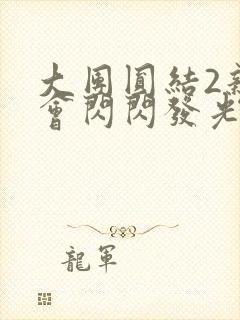 大團圓結2新
會閃閃發光
龍軍